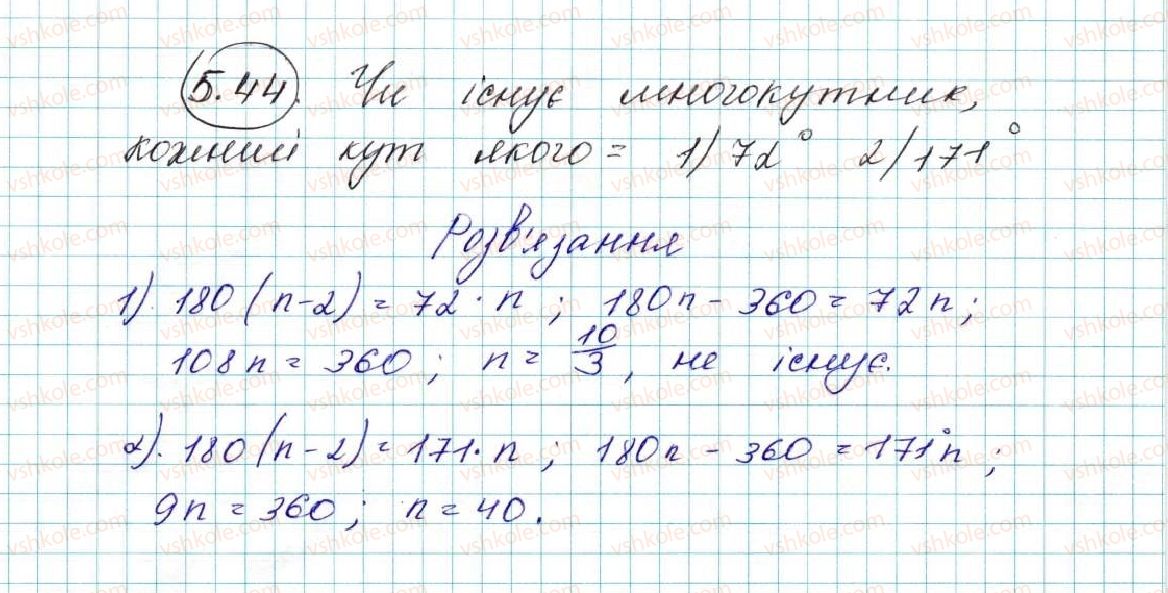 5.44. Чи існує многокутник,
кожний кут якого = 1) 72° 2) 171°
Розв'язання
1) 180(n-2) = 72·n; 180n - 360 = 72n;
108n = 360; n = 10/3, не існує.
2). 180(n-2) = 171·n; 180n - 360 = 171°n;
9n = 360; n = 40.